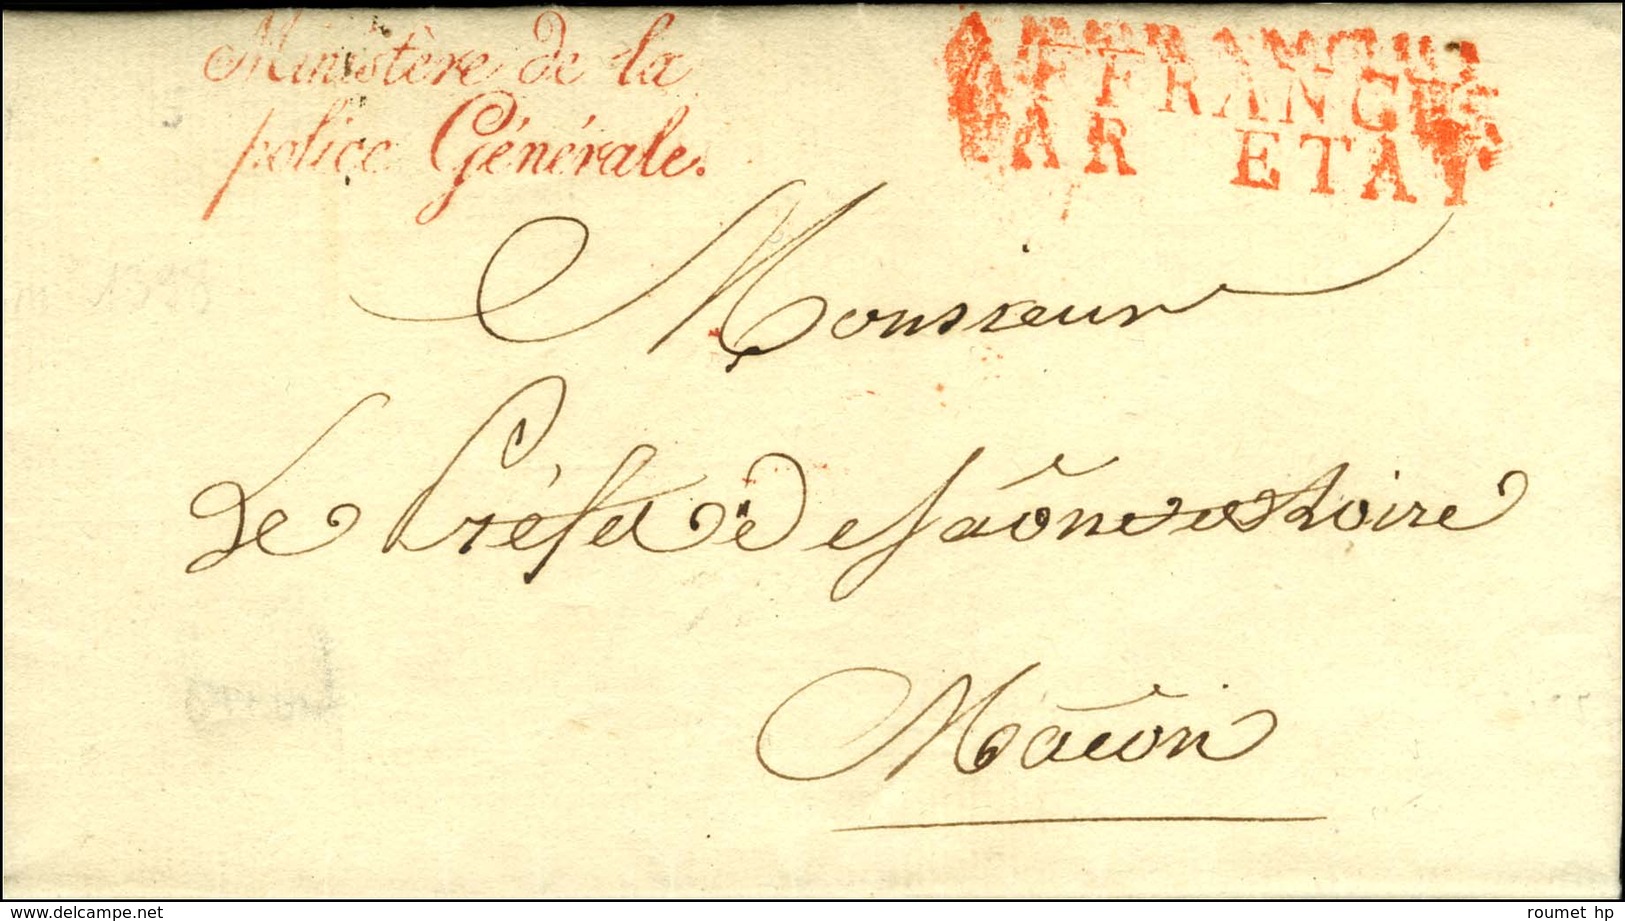 Ministère de la
police Générale.
AFFRANCHI
AR ETAT
Monsieur
Le Préfet de Saône et Loire
Mâcon
n° 1398
roumet hp
www.delcampe.net